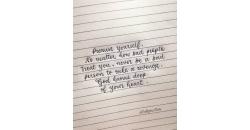 Promise yourself,
No matter, how bad people
treat you, never be a bad
person to take a revenge.
God knows deep
of your heart.